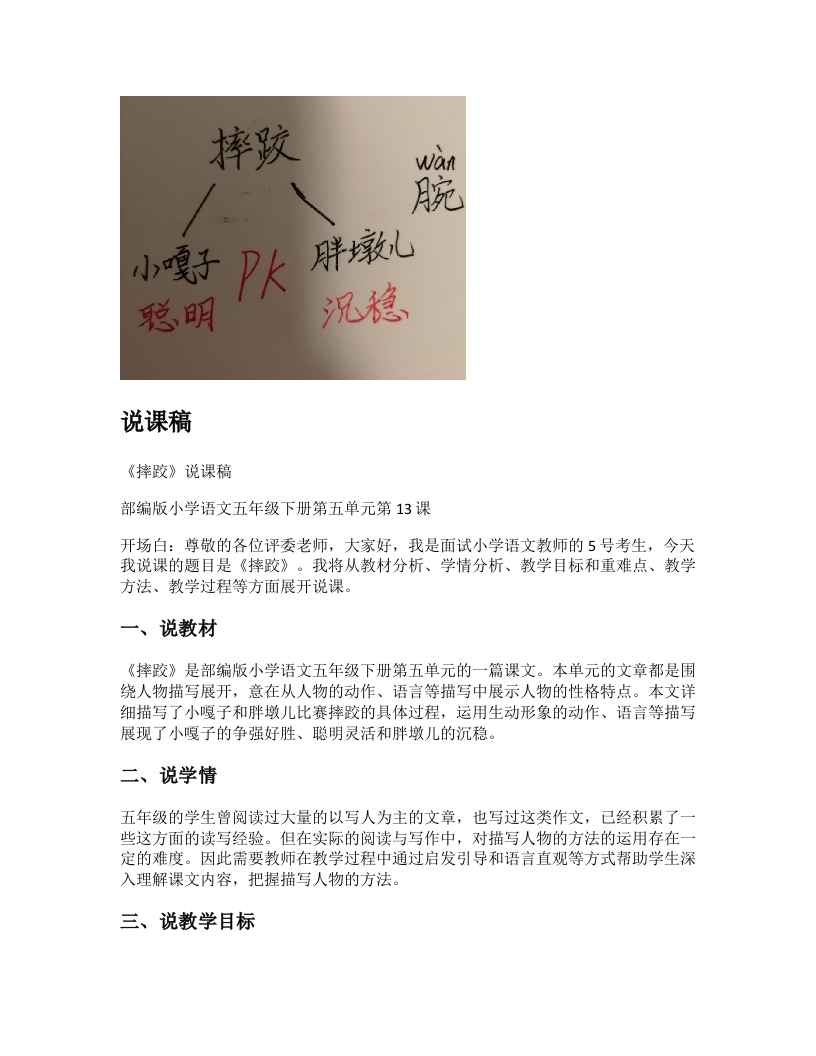 摔跤
wàn
腕
小嘎子 PK 胖墩儿
聪明 沉稳
说课稿
《摔跤》说课稿
部编版小学语文五年级下册第五单元第 13 课
开场白：尊敬的各位评委老师，大家好，我是面试小学语文教师的 5 号考生，今天
我说课的题目是《摔跤》。我将从教材分析、学情分析、教学目标和重难点、教学
方法、教学过程等方面展开说课。
一、说教材
《摔跤》是部编版小学语文五年级下册第五单元的一篇课文。本单元的文章都是围
绕人物描写展开，意在从人物的动作、语言等描写中展示人物的性格特点。本文详
细描写了小嘎子和胖墩儿比赛摔跤的具体过程，运用生动形象的动作、语言等描写
展现了小嘎子的争强好胜、聪明灵活和胖墩儿的沉稳。
二、说学情
五年级的学生曾阅读过大量的以写人为主的文章，也写过这类作文，已经积累了一
些这方面的读写经验。但在实际的阅读与写作中，对描写人物的方法的运用存在一
定的难度。因此需要教师在教学过程中通过启发引导和语言直观等方式帮助学生深
入理解课文内容，把握描写人物的方法。
三、说教学目标